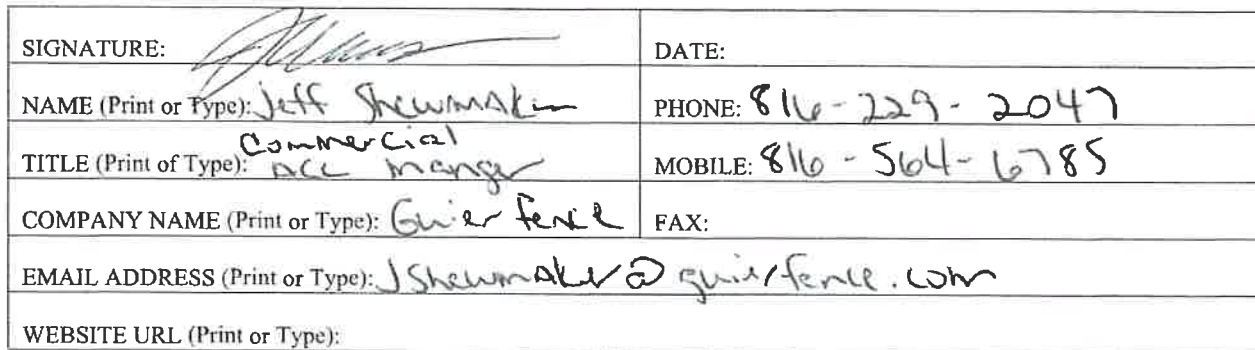 SIGNATURE:
DATE:
NAME (Print or Type): Jeff Shewmaker
PHONE: 816-229-2047
Commercial
TITLE (Print of Type): Acc Manger
MOBILE: 816-564-6785
COMPANY NAME (Print or Type): Guier Fence
FAX:
EMAIL ADDRESS (Print or Type): JShewmaker@guierfence.com
WEBSITE URL (Print or Type):